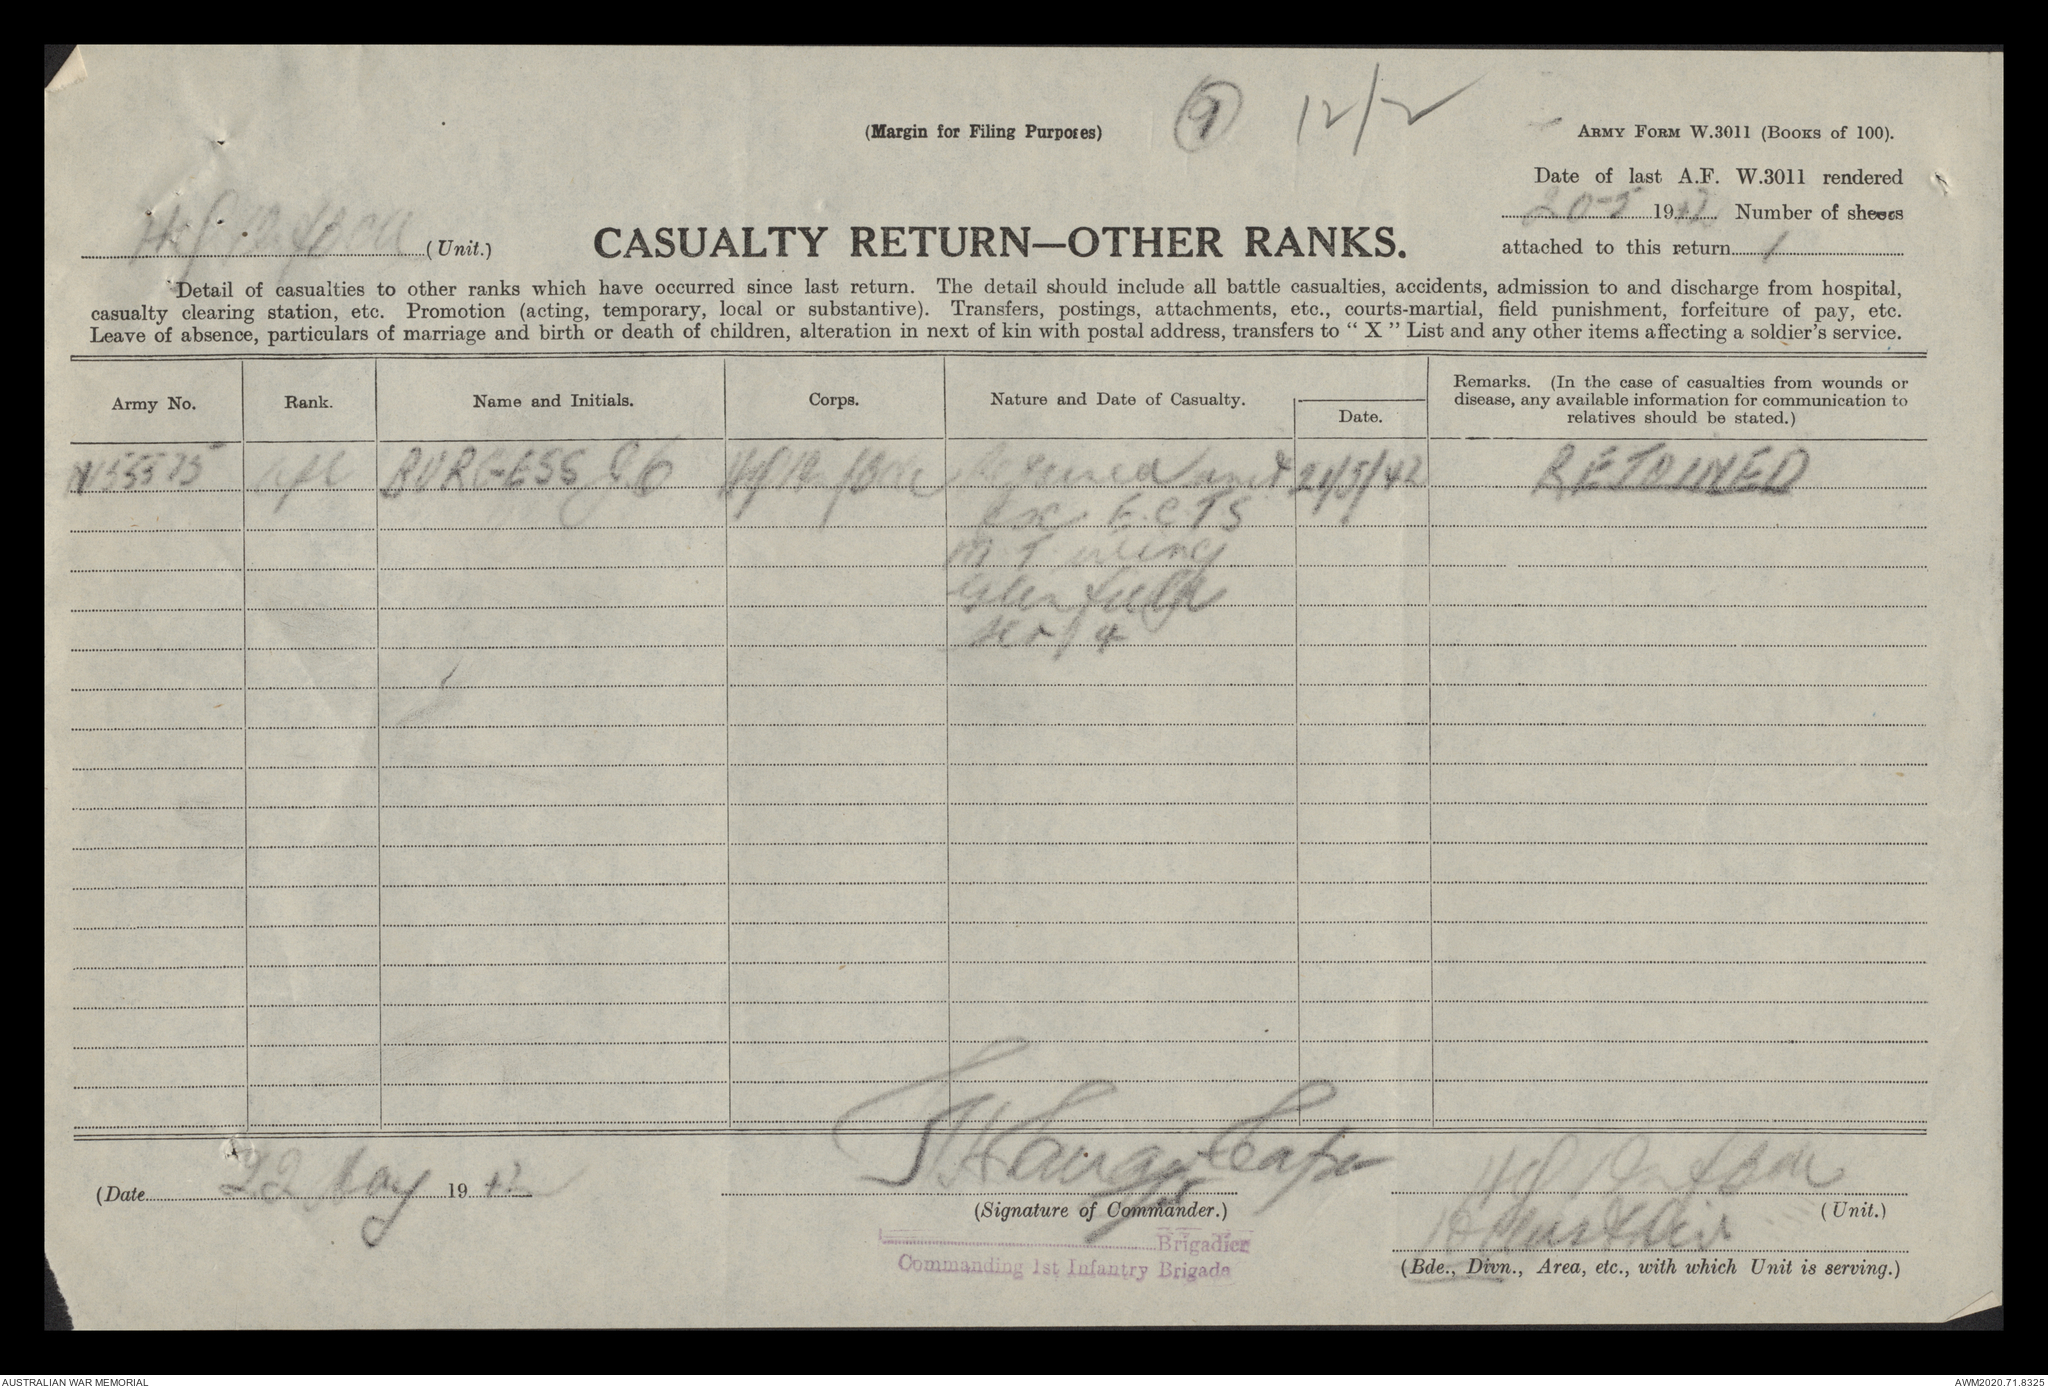 (Margin for Filing Purposes)
9
12/2
ARMY FORM W.3011 (Books of 100).
Date of last A.F. W.3011 rendered
20-5 1942 Number of sheets
attached to this return 1
(Unit.)
CASUALTY RETURN—OTHER RANKS.
Detail of casualties to other ranks which have occurred since last return. The detail should include all battle casualties, accidents, admission to and discharge from hospital,
casualty clearing station, etc. Promotion (acting, temporary, local or substantive). Transfers, postings, attachments, etc., courts-martial, field punishment, forfeiture of pay, etc.
Leave of absence, particulars of marriage and birth or death of children, alteration in next of kin with postal address, transfers to “ X ” List and any other items affecting a soldier's service.
Army No. Rank. Name and Initials. Corps. Nature and Date of Casualty. Date. Remarks. (In the case of casualties from wounds or
disease, any available information for communication to
relatives should be stated.)
N55575 BURGESS Rejoined unit 21/5/42 RETAINED
E.C.T.S
M.T. wing
Glenfield
Ser 14
(Date 22 May 1942
(Signature of Commander.)
(Unit.)
Brigadier
Commanding 1st Infantry Brigade
1 Aust Div
(Bde., Divn., Area, etc., with which Unit is serving.)
AUSTRALIAN WAR MEMORIAL
AWM2020.71.8325